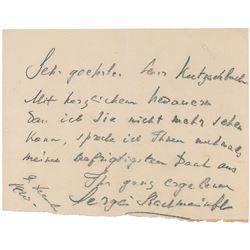 Sehr geehrter Herr Kutzschbach
Mit herzlichem bedauern
dass ich Sie nicht mehr sehen
kann, spreche ich Ihnen nochmals
meinen aufrichtigsten Dank aus
Ihr ganz ergebener
Sergei Rachmaninoff